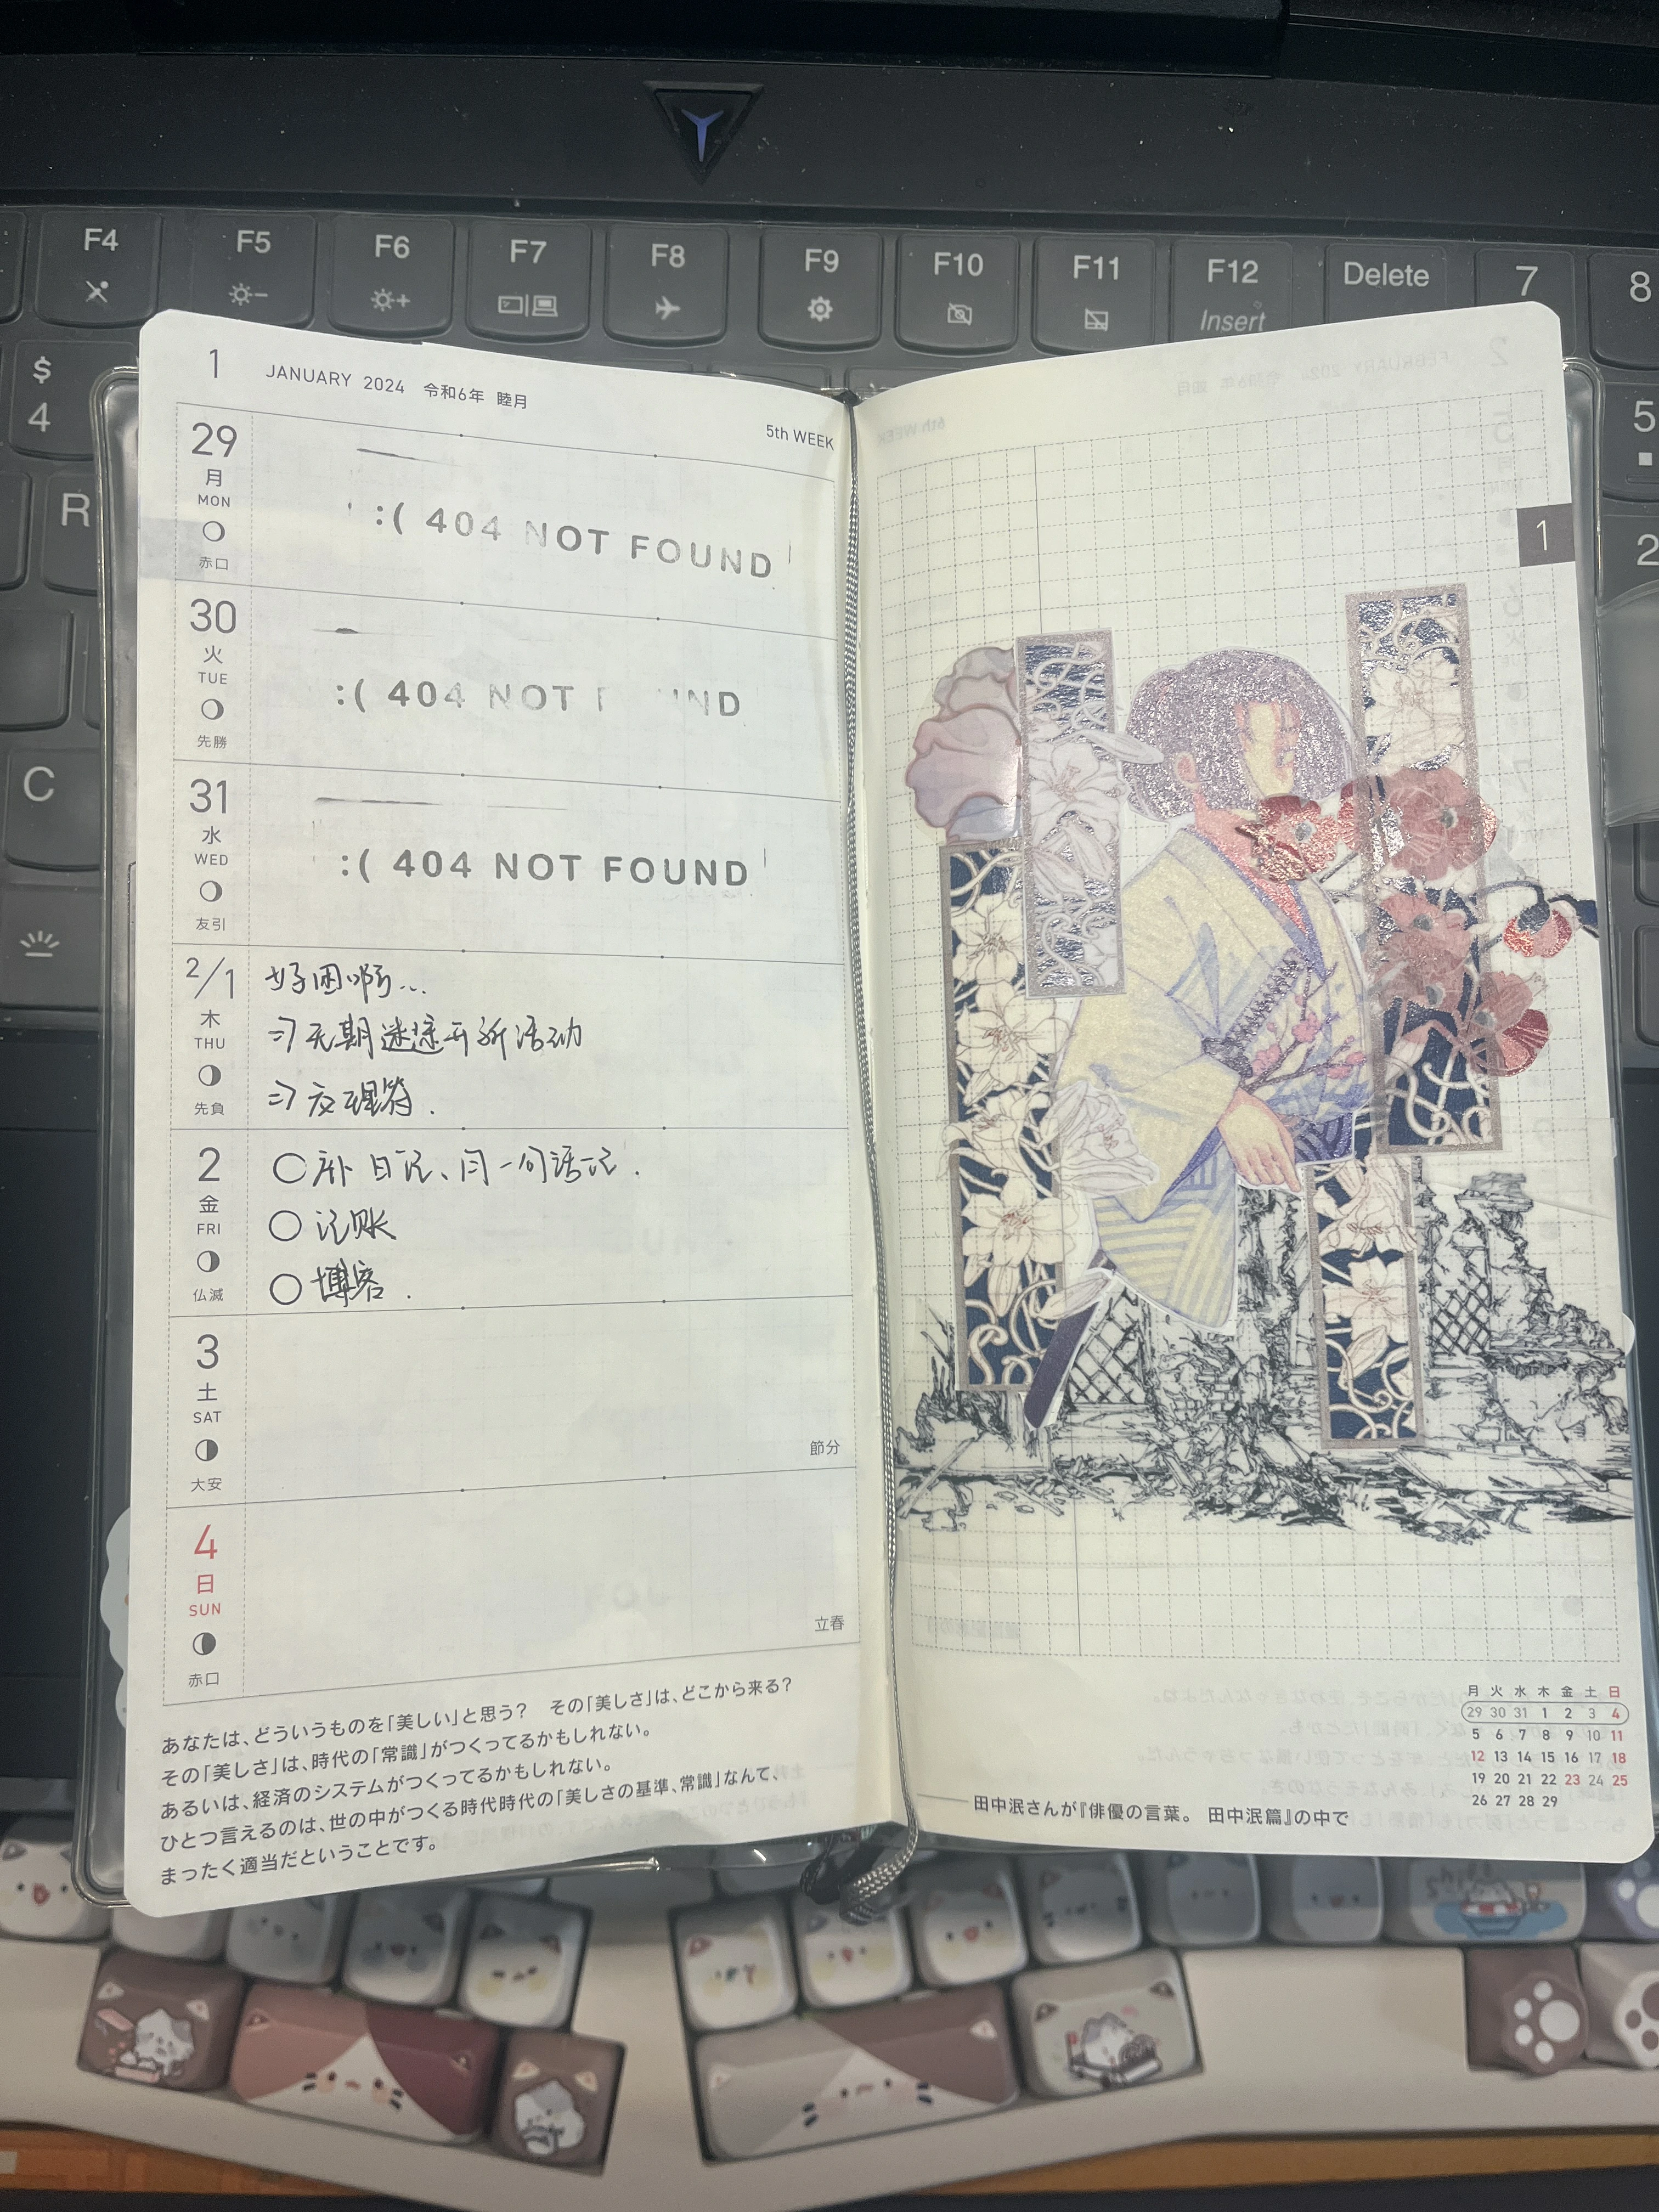 F4
F5
F6
F7
F8
F9
F10
F11
F12
Insert
Delete
7
8
$
4
R
C
5
2
1 JANUARY 2024 令和6年 睦月
5th WEEK
29
月
MON
赤口
:( 404 NOT FOUND
30
火
TUE
先勝
:( 404 NOT F UND
31
水
WED
友引
:( 404 NOT FOUND
2/1
木
THU
先負
好困啊…
⇒ 无期迷途开新活动
2
金
FRI
仏滅
○ 补日记、问一句话记.
○ 记账
○ 博客.
3
土
SAT
大安
節分
4
日
SUN
赤口
立春
あなたは、どういうものを「美しい」と思う? その「美しさ」は、どこから来る?
その「美しさ」は、時代の「常識」がつくってるかもしれない。
あるいは、経済のシステムがつくってるかもしれない。
ひとつ言えるのは、世の中がつくる時代時代の「美しさの基準、常識」なんて、
まったく適当だということです。
1
月 火 水 木 金 土 日
29 30 31 1 2 3 4
5 6 7 8 9 10 11
12 13 14 15 16 17 18
19 20 21 22 23 24 25
26 27 28 29
田中泯さんが『俳優の言葉。 田中泯篇』の中で